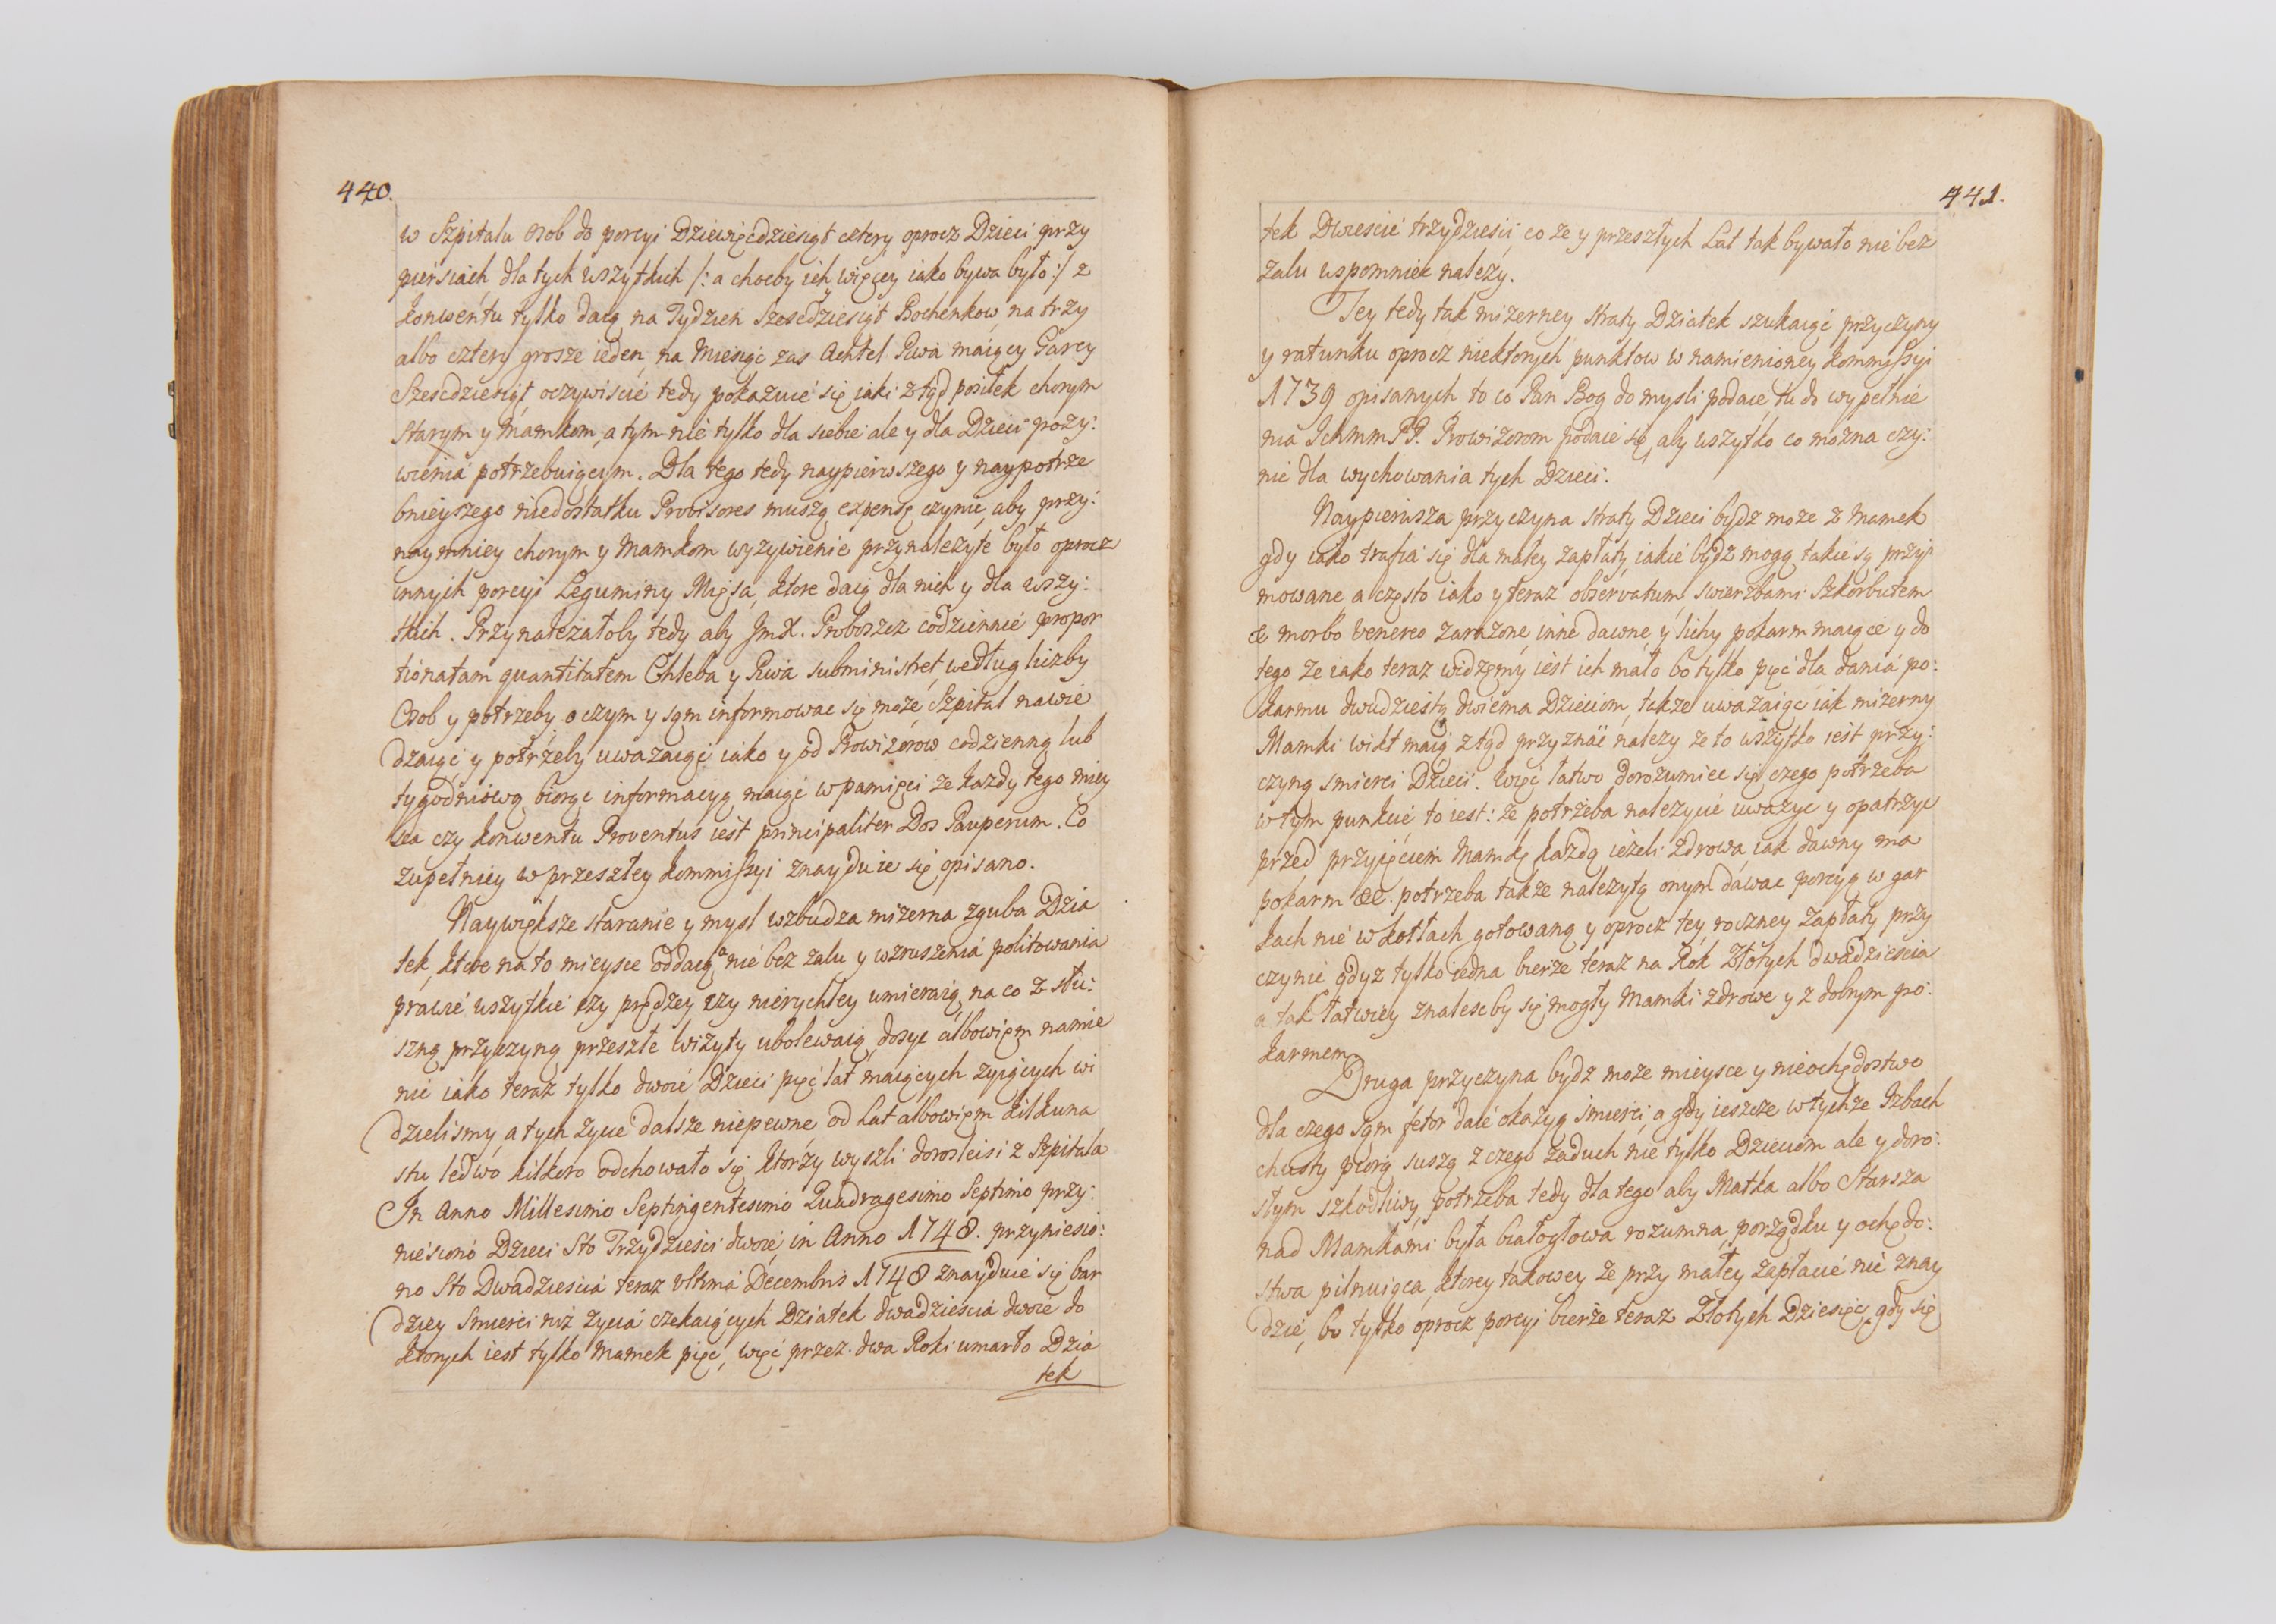 440.
w Szpitalu osob do porcyi Dziewięcdziesiąt cztery oprocz Dzieci przy
piersiach dla tych wszytkich /: a chocby ich więcey iako bywa było :/ z
konwentu tylko daią na Tydzien szescdziesiąt Bochenkow, na trzy
albo cztery grosze ieden, na Miesiąc zas Achtel Piwa maiący Garcy
Szescdziesiąt oczywiscie tedy pokazuie się iaki ztąd posiłek chorym
starym y Mamkom, a tym nie tylko dla siebie ale y dla Dzieci pozy:
wienia potrzebuiącym. Dla tego tedy naypierwszego y naypotrze
bnieyszego niedostatku Provisores muszą expensę czynic, aby przy:
naymniey chorym y Mamkom wyzywienie przynalezyte było oprocz
innych porcyi Leguminy Mięsa, ktore daią dla nich y dla wszy:
tkich. Przynalezałoby tedy aby JmX. Proboszcz codziennie propor
tionatam quantitatem Chleba y Piwa subministret, według liczby
Osob y potrzeby, o czym y sąm informowac się może Szpital nawie
dzaiąc y potrzeby uwazaiąc iako y od Prowizorow codzienną lub
tygodniową biorąc informacyą, maiąc w pamięci ze kazdy tego miey
sca czy konwentu Proventus iest principaliter Dos Pauperum. Co
zupełniey w przeszłey kommissyi znayduie się opisano.
Naywiększe staranie y mysl wzbudza mizerna zguba Dzia
tek, ktore na to mieysce oddaią a nie bez zalu y wzruszenia politowania
prawie wszytkie czy prędzey czy nierychłey umieraią, na co z słu:
szną przyczyną przeszłe wizyty ubolewaią, dosyc albowięm namie
nic iako teraz tylko dwoie Dzieci pięć lat maiących zyiących wi
dzielismy, a tych zycie dalsze niepewne od Lat albowięm kilkuna
stu ledwo kilkoro odchowało się ktorzy wyszli dorosleisi z Szpitala
In Anno Millesimo Septingentesimo Quadragesimo Septimo przy:
niesiono Dzieci Sto Trzydzieści dwoie, in Anno 1748. przyniesio:
no Sto Dwadziescia teraz Ultima Decembris 1748 znayduie się bar
dziey smierci niż życia czekaiących Dziatek dwadziescia dwoie do
ktorych iest tylko Mamek pięć, więc przez dwa Roki umarło Dzia
tek
441.
tek Dwiescie trzydziesci, co ze y przeszłych Lat tak bywało nie bez
zalu wspomniec nalezy.
Tey tedy tak mizerney straty Dziatek szukaiąc przyczyny
y ratunku oprocz niektorych punktow w namienioney kommissyi
1739 opisanych to co Pan Bog do mysli podaie, tu do wypełnie
nia Ichmm PP. Prowizorom podaie się, aby wszytko co mozna czy:
nic dla wychowania tych Dzieci.
Naypierwsza przyczyna straty Dzieci bydz moze z Mamek
gdy iako trafia się dla małey zapłaty, iakie bydz mogą takie są przy
mowane, a często iako y teraz observatum, swierzbami Szkorbutem
& morbo Venereo zarazone, inne dawne y lichy pokarm maiące y do
tego ze iako teraz widzęmy iest ich mało bo tylko pięć dla dania po:
karmu dwudziestą dwiema Dzieciom, takze uwazaiąc iak mizerny
Mamki wikt maią ztąd przyznać nalezy ze to wszytko iest przy:
czyną smierci Dzieci. Więc łatwo dorozumiec się czego potrzeba
w tym punkcie to iest: ze potrzeba nalezycie uwazyc y opatrzyc
przed przyięciem Mamkę kazdą iezeli zdrowa, iak dawny ma
pokarm &c. potrzeba takze nalezytą onym dawac porcyą w gar
kach nie w kotłach gotowaną y oprocz tey roczney zapłaty przy
czynic gdyz tylko iedna bierze teraz na Rok Złotych dwadziescia
a tak łatwiey znalescby się mogły Mamki zdrowe y z dobrym po:
karmem.
Druga przyczyna bydz moze mieysce y nieochędostwo
dla czego sąm fetor daie okazyą smierci, a gdy ieszcze w tychze Izbach
chusty piorą suszą z czego zaduch nie tylko Dzieciom ale y doro:
słym szkodliwy, potrzeba tedy dla tego aby Matka albo Starsza
nad Mamkami była białogłowa rozumna, porządku y ochędo:
stwa pilnuiąca, ktorey takowey ze przy małey zapłacie nie znay
dzie, bo tylko oprocz porcyi bierze teraz Złotych Dziesięc, gdy się